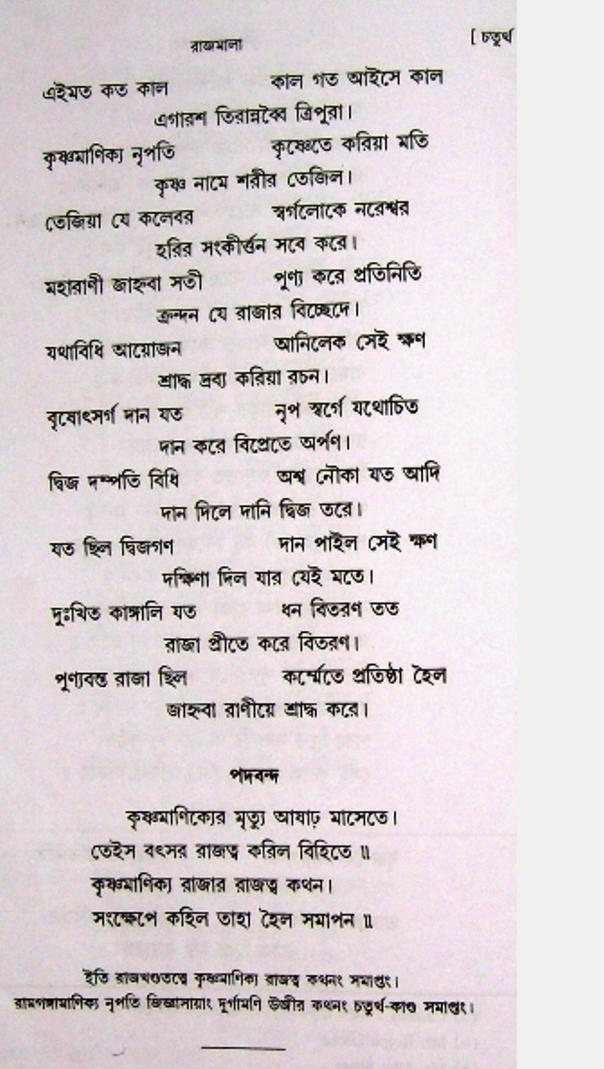 রাজমালা [ চতুর্থ
এইমত কত কাল কাল গত আইসে কাল
এগারশ তিরান্নব্বৈ ত্রিপুরা।
কৃষ্ণমাণিক্য নৃপতি কৃষ্ণেতে করিয়া মতি
কৃষ্ণ নামে শরীর তেজিল।
তেজিয়া যে কলেবর স্বর্গলোকে নরেশ্বর
হরির সংকীর্ত্তন সবে করে।
মহারাণী জাহ্নবা সতী পূণ্য করে প্রতিনিতি
ক্রন্দন যে রাজার বিচ্ছেদে।
যথাবিধি আয়োজন আনিলেক সেই ক্ষণ
শ্রাদ্ধ দ্রব্য করিয়া রচন।
বৃষোৎসর্গ দান যত নৃপ স্বর্গে যথোচিত
দান করে বিপ্রেতে অর্পণ।
দ্বিজ দম্পতি বিধি অশ্ব নৌকা যত আদি
দান দিলে দানি দ্বিজ তরে।
যত ছিল দ্বিজগণ দান পাইল সেই ক্ষণ
দক্ষিণা দিল যার যেই মতে।
দুঃখিত কাঙ্গালি যত ধন বিতরণ তত
রাজা প্রীতে করে বিতরণ।
পূণ্যবন্ত রাজা ছিল কর্ম্মেতে প্রতিষ্ঠা হৈল
জাহ্নবা রাণীয়ে শ্রাদ্ধ করে।
পদবন্দ
কৃষ্ণমাণিক্যের মৃত্যু আষাঢ় মাসেতে।
তেইস বৎসর রাজত্ব করিল বিহিতে ॥
কৃষ্ণমাণিক্য রাজার রাজত্ব কথন।
সংক্ষেপে কহিল তাহা হৈল সমাপন ॥
ইতি রাজখণ্ডতত্বে কৃষ্ণমাণিক্য রাজত্ব কথনং সমাপ্তং।
রামগঙ্গামাণিক্য নৃপতি জিজ্ঞাসায়াং দুর্গামণি উজীর কথনং চতুর্থ-কাণ্ড সমাপ্তং।